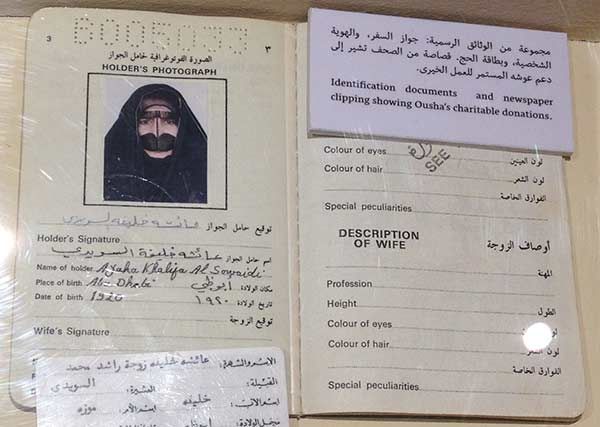 3
٣
الصورة الفوتوغرافية لحامل الجواز
HOLDER'S PHOTOGRAPH
عائشة خليفة السويدي
توقيع حامل الجواز
Holder's Signature
اسم حامل الجواز عائشة خليفة السويدي
Name of holder Ayaha Khalifa Al Sowaidi
Place of birth Abu Dhabi مكان الولادة ابوظبي
Date of birth 1920 تاريخ الولادة ١٩٢٠
توقيع الزوجة
Wife's Signature
الاسم والشهرة: عائشة خليفة زوجة راشد محمد
القبيلة: العشيرة: السويدي
اسم الأب: خليفة اسم الأم: موزه
محل الولادة:
مجموعة من الوثائق الرسمية: جواز السفر، والهوية
الشخصية، وبطاقة الحج. قصاصة من الصحف تشير إلى
دعم عوشه المستمر للعمل الخيري.
Identification documents and newspaper
clipping showing Ousha's charitable donations.
SEE
Colour of eyes لون العينين
Colour of hair لون الشعر
Special peculiarities الفوارق الخاصة
DESCRIPTION
OF WIFE
أوصاف الزوجة
Profession المهنة
Height الطول
Colour of eyes لون العينين
Colour of hair الشعر
Special peculiarities الفوارق الخاصة